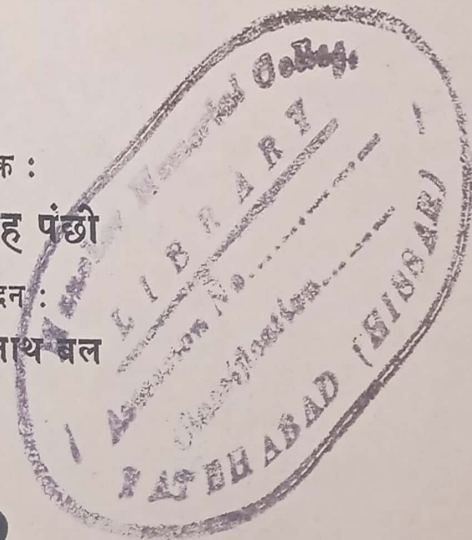 क :
ह पंछी
दन :
नाथ बल
Memorial College
LIBRARY
Accession No..........
Classification..........
FATEHABAD (HISSAR)